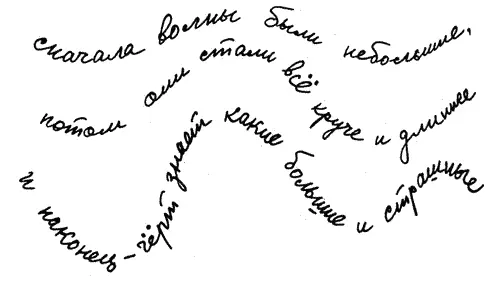 сначала волны были небольшие,
потом они стали всё круче и длиннее
и наконец – чёрт знает какие большие и страшные